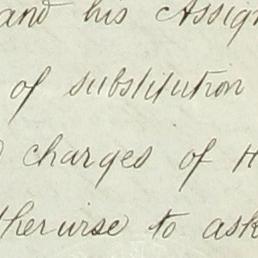 and his Assign
of substitution
charges of H
therwise to ask